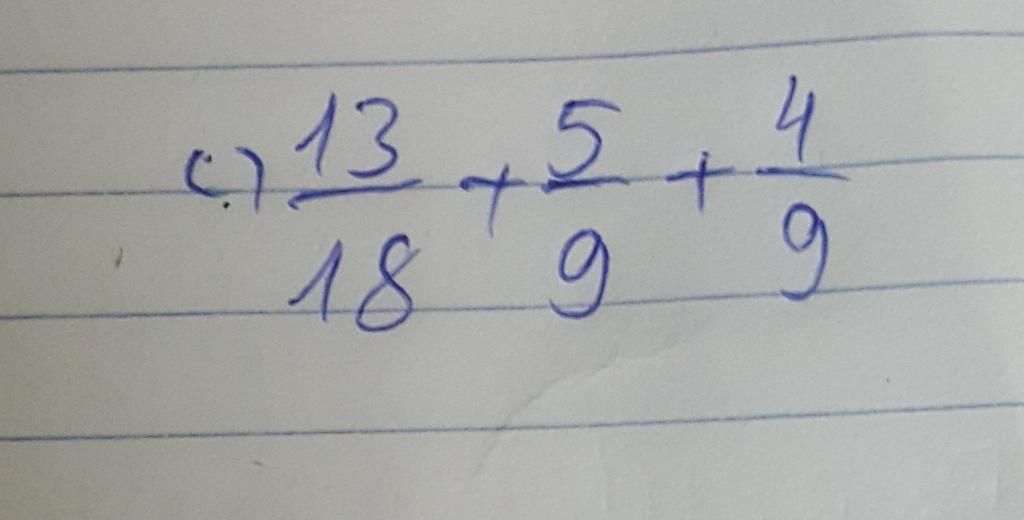 c.) 13/18 + 5/9 + 4/9